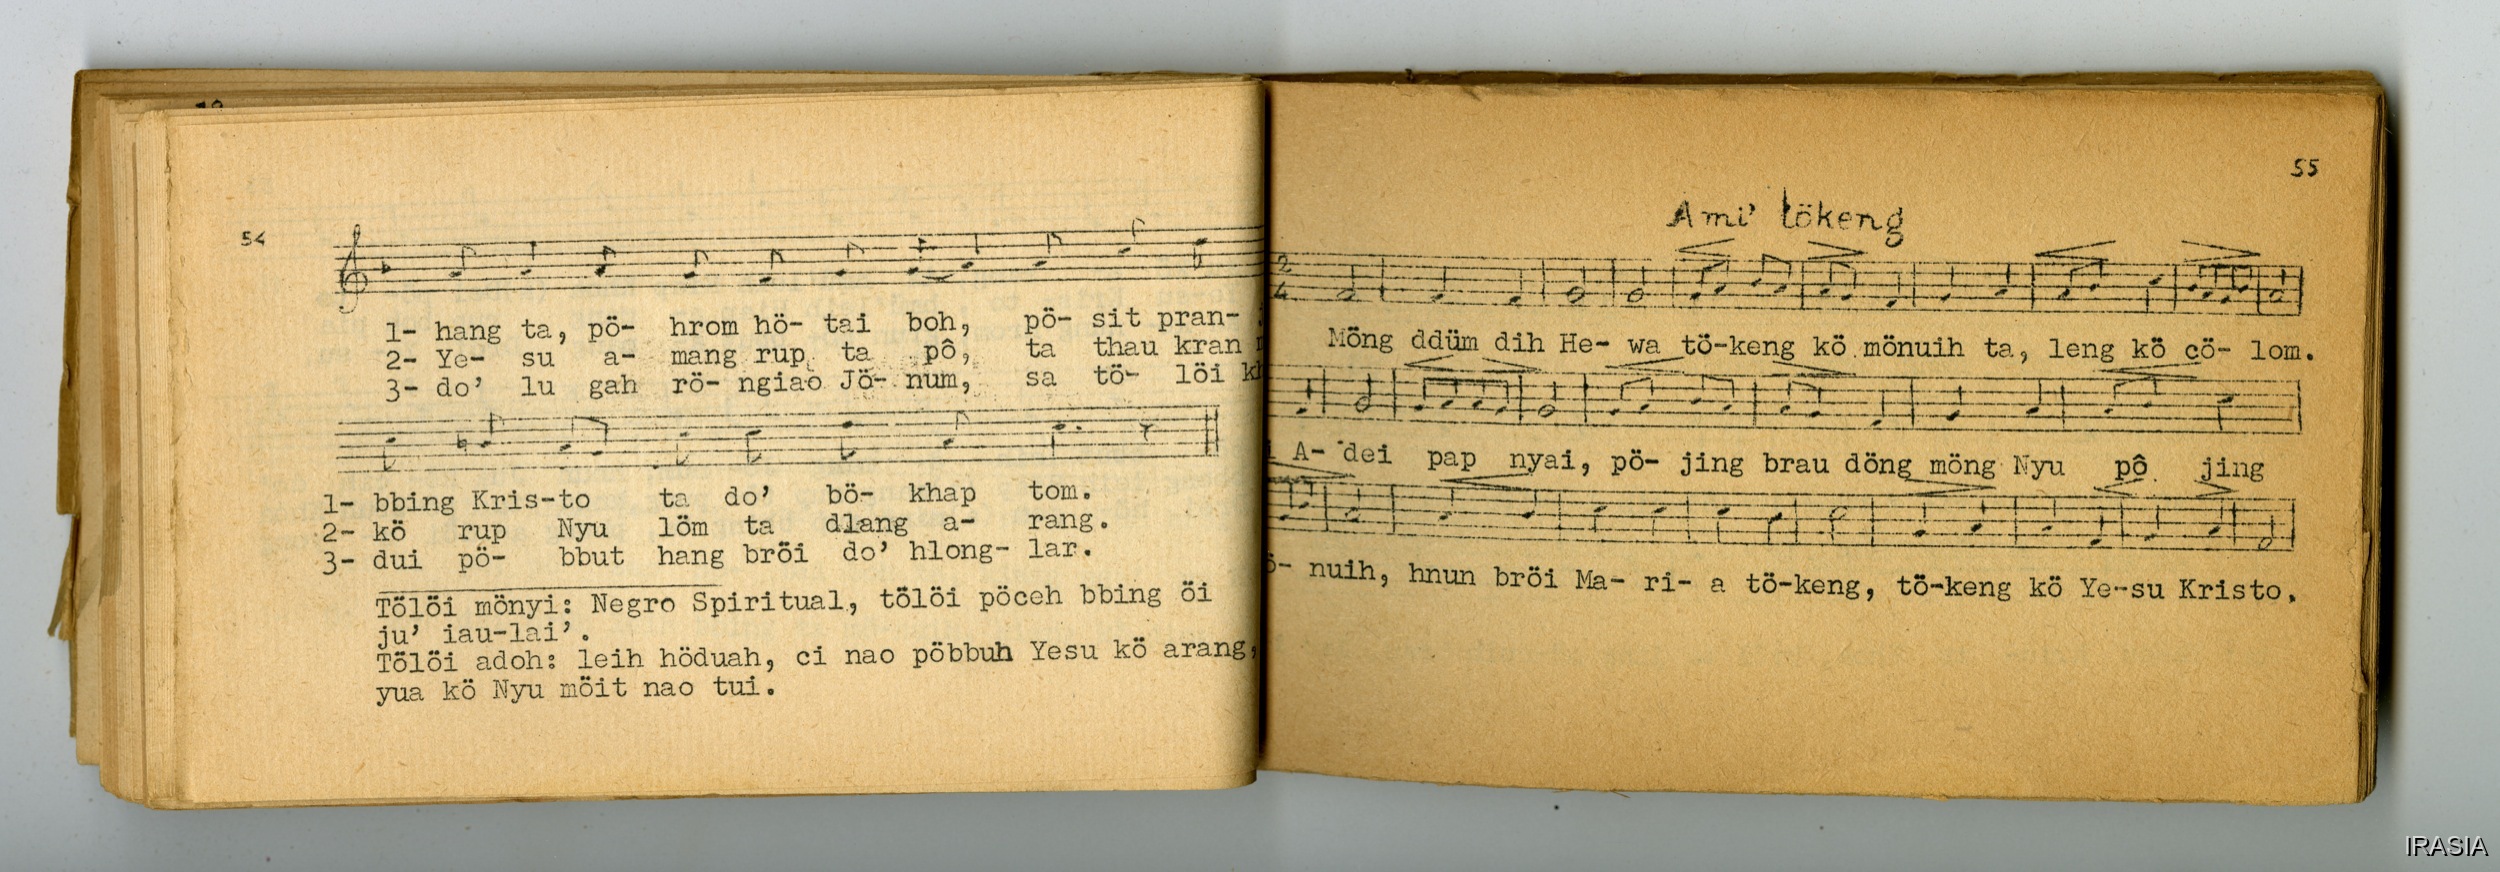 54
1- hang ta, pö- hrom hö- tai boh, pö- sit pran-
2- Ye- su a- mang rup ta pô, ta thau kran
3- do' lu gah rö- ngiao Jö- num, sa tö- löi
1- bbing Kris-to ta do' bö- khap tom.
2- kö rup Nyu löm ta dlang a- rang.
3- dui pö- bbut hang bröi do' hlong- lar.
Tölöi mönyi: Negro Spiritual, tölöi pöceh bbing öi
ju' iau-lai'.
Tölöi adoh: leih höduah, ci nao pöbbuh Yesu kö arang,
yua kö Nyu möit nao tui.
55
Ami' tökeng
2
4
Möng ddüm dih He- wa tö-keng kö mönuih ta, leng kö cö- lom.
A- dei pap nyai, pö- jing brau döng möng Nyu pô jing
nuih, hnun bröi Ma- ri- a tö-keng, tö-keng kö Ye-su Kristo.
IRASIA